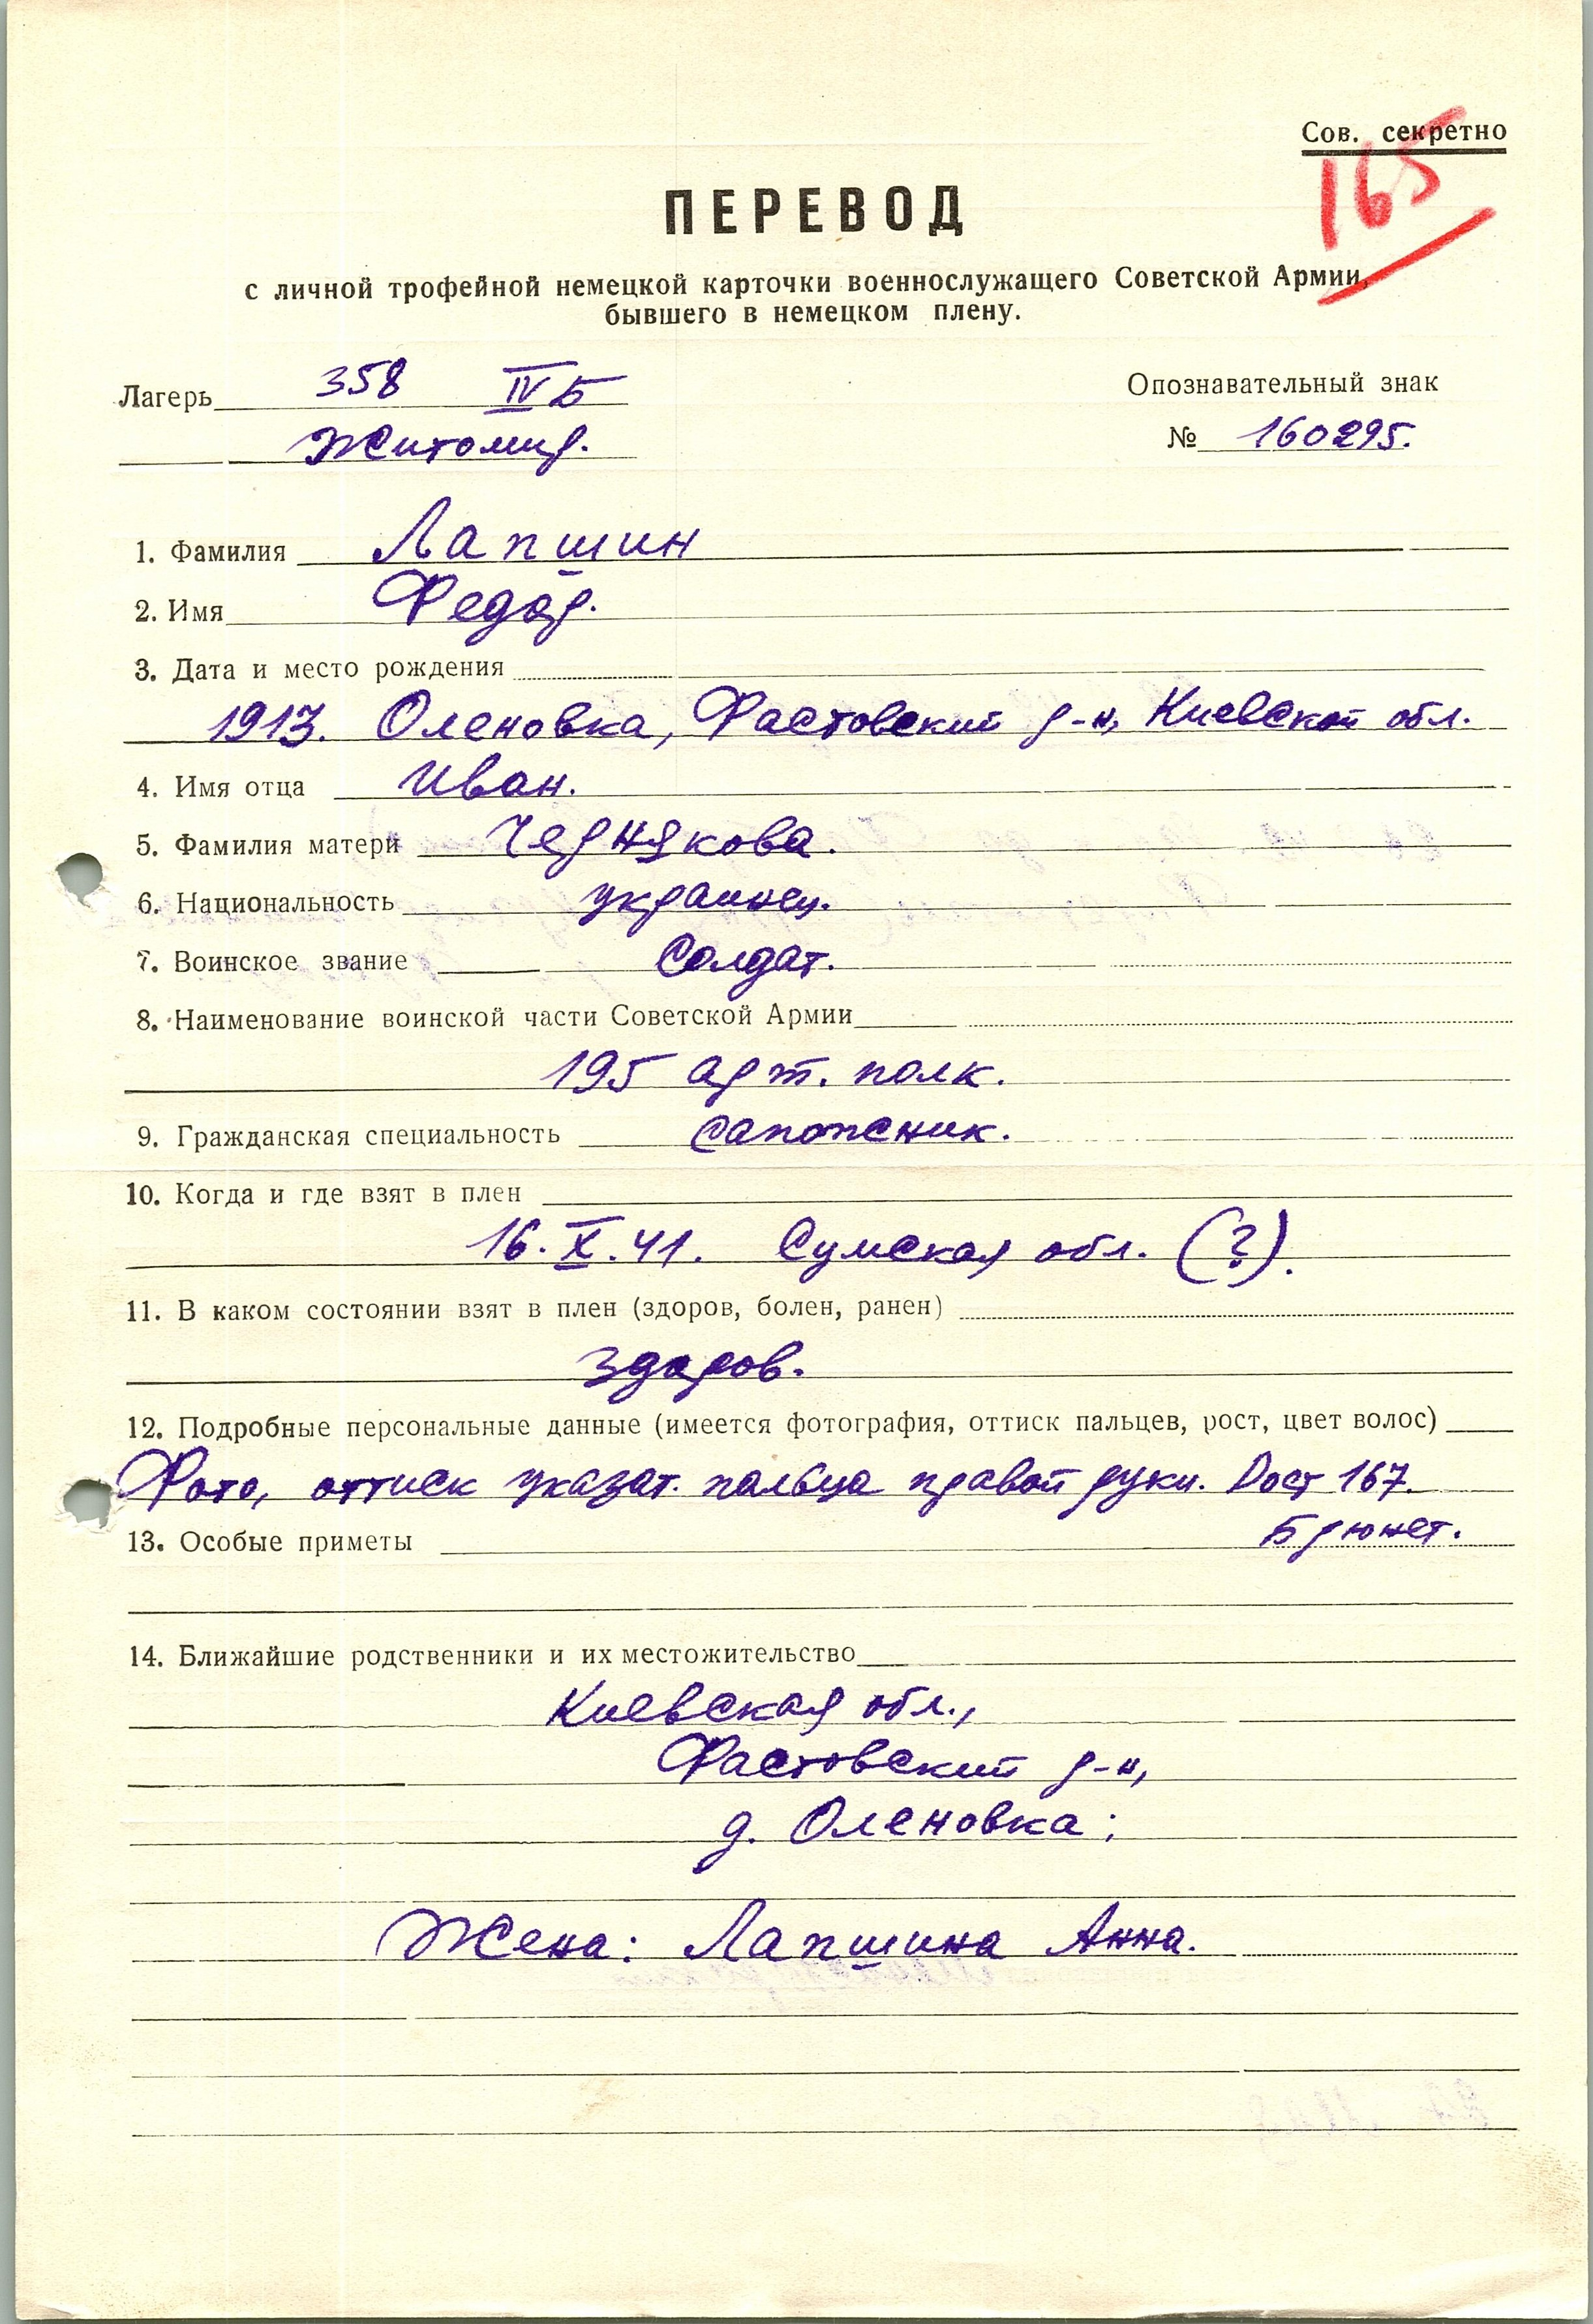 Сов. секретно
165
ПЕРЕВОД
с личной трофейной немецкой карточки военнослужащего Советской Армии,
бывшего в немецком плену.
Лагерь 358 IV Б
Житомир.
Опознавательный знак
№ 160295.
1. Фамилия Лапшин
2. Имя Федор.
3. Дата и место рождения
1913. Оленовка, Фастовский р-н, Киевской обл.
4. Имя отца Иван.
5. Фамилия матери Чернякова.
6. Национальность украинец.
7. Воинское звание Солдат.
8. Наименование воинской части Советской Армии
195 арт. полк.
9. Гражданская специальность сапожник.
10. Когда и где взят в плен
16.X.41. Сумская обл. (?).
11. В каком состоянии взят в плен (здоров, болен, ранен)
здоров.
12. Подробные персональные данные (имеется фотография, оттиск пальцев, рост, цвет волос)
Фото, оттиск указат. пальца правой руки. Рост 167.
Брюнет.
13. Особые приметы
14. Ближайшие родственники и их местожительство
Киевская обл.,
Фастовский р-н,
д. Оленовка;
Жена: Лапшина Анна.